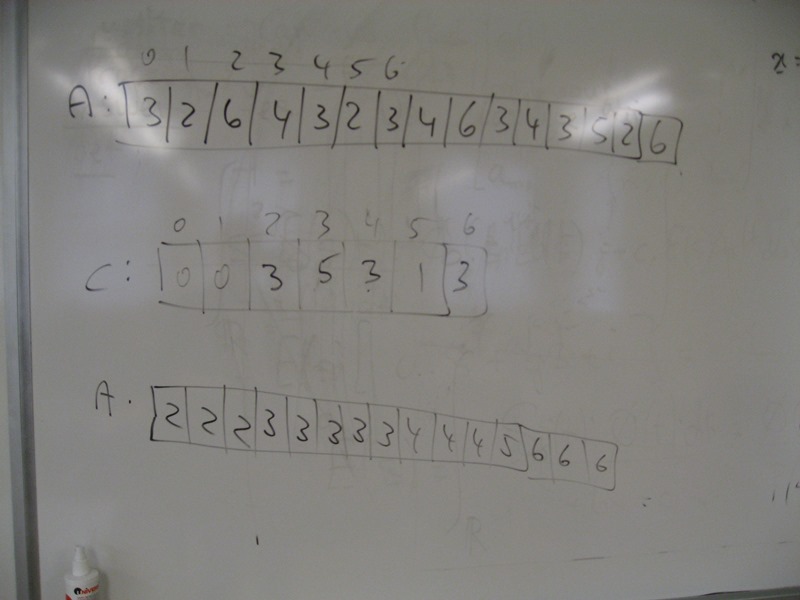 0 1 2 3 4 5 6
A: 3 2 6 4 3 2 3 4 6 3 4 3 5 2 6
0 1 2 3 4 5 6
C: 0 0 3 5 3 1 3
A. 2 2 2 3 3 3 3 3 4 4 4 5 6 6 6
x =